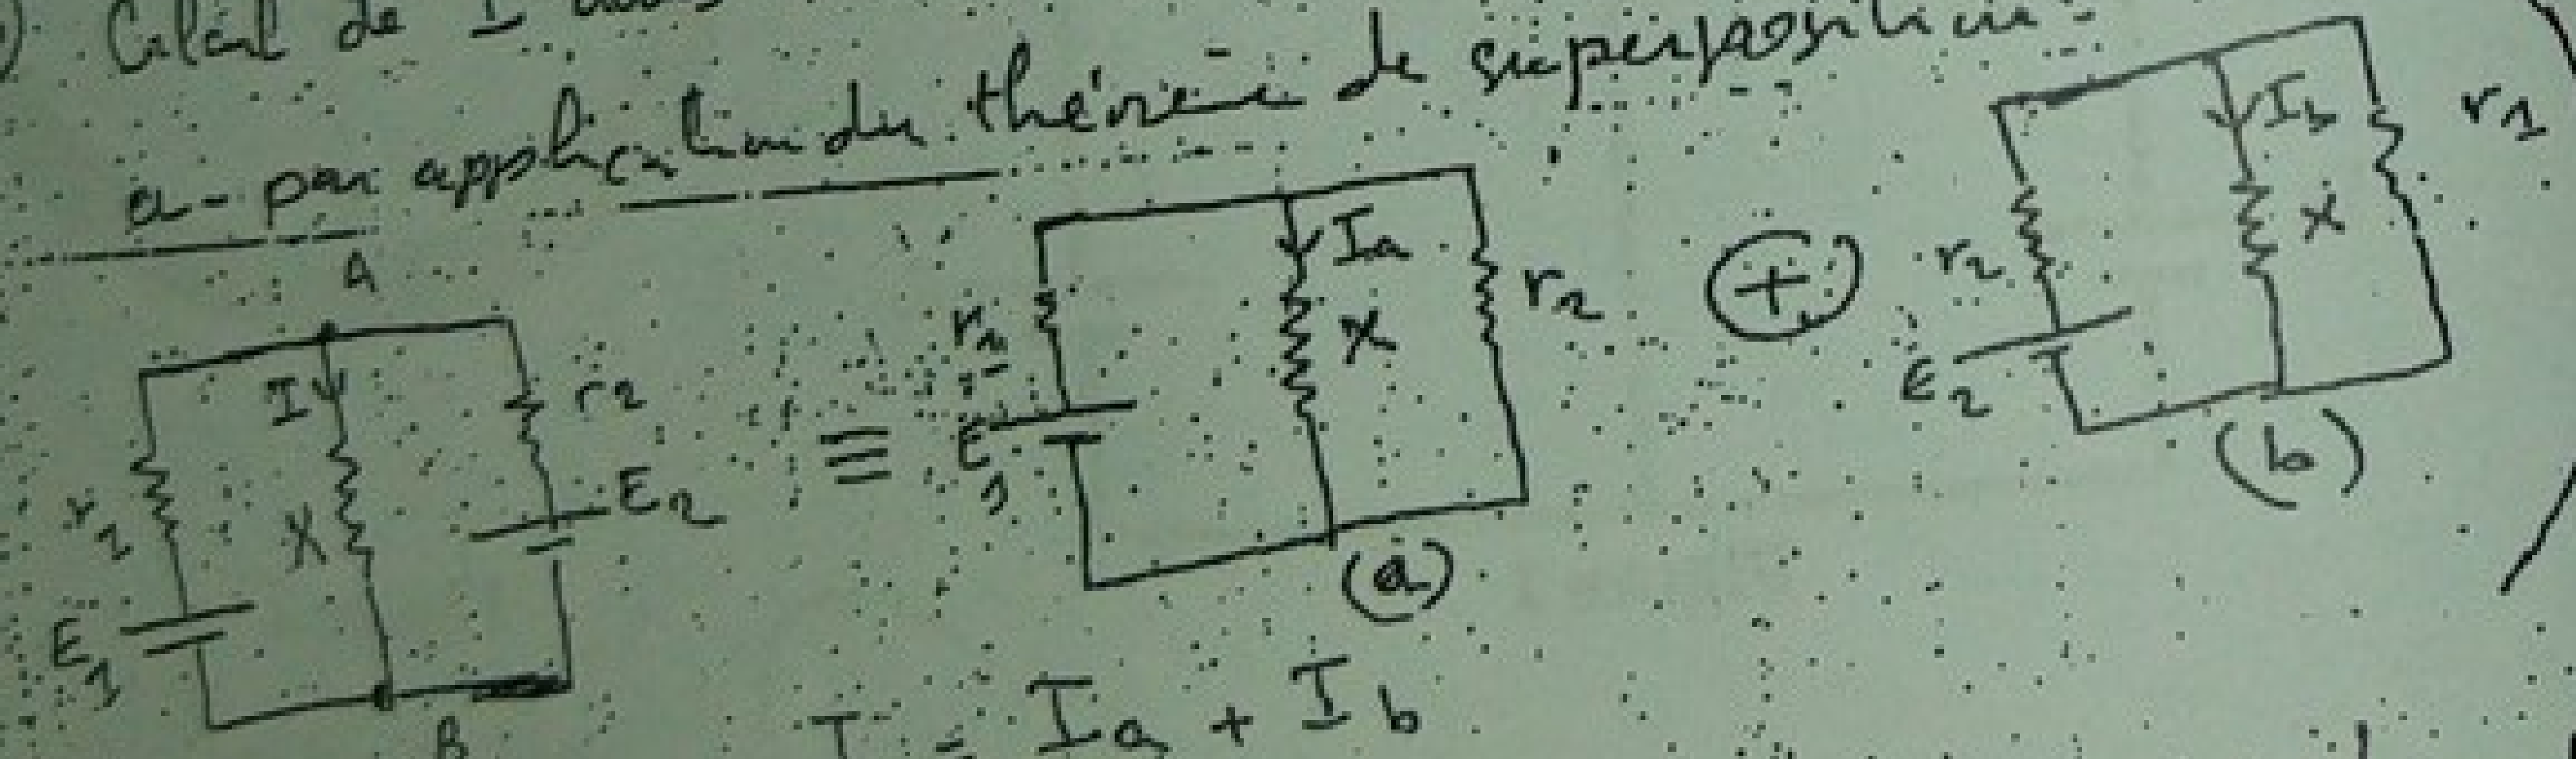 Calcul de I
a- par application du théorème de superposition
A
I
r2
X
E2
E1
B
≡
r1
E1
Ia
X
r2
(a)
+
r2
E2
Ib
X
r1
(b)
I = Ia + Ib